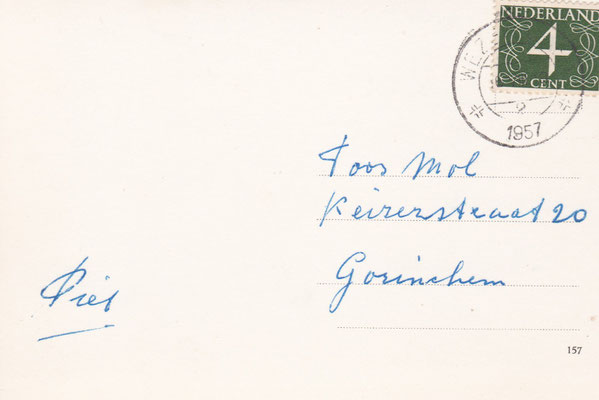 NEDERLAND
4
CENT
WEZ
1957
Toos Mol
Keizerstraat 20
Gorinchem
Piet
157